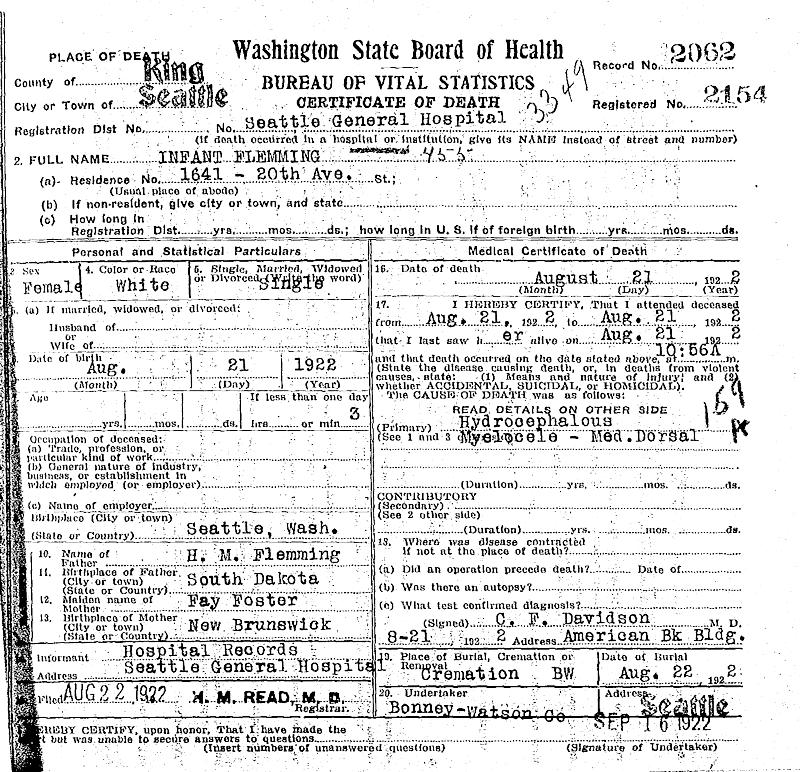 Washington State Board of Health
PLACE OF DEATH
Record No. 2062
County of King
BUREAU OF VITAL STATISTICS
City or Town of Seattle
CERTIFICATE OF DEATH
3349
Registered No. 2154
Registration Dist No. No. Seattle General Hospital
(If death occurred in a hospital or institution, give its NAME instead of street and number)
2. FULL NAME INFANT FLEMMING 45-5-
(a) Residence No. 1641 - 20th Ave. St.;
(Usual place of abode)
(b) If non-resident, give city or town, and state
(c) How long in
Registration Dist. yrs. mos. ds.; how long in U. S. if of foreign birth yrs. mos. ds.
Personal and Statistical Particulars
Sex
Female
4. Color or Race
White
5. Single, Married, Widowed
or Divorced (Write the word)
Single
(a) If married, widowed, or divorced:
Husband of
or
Wife of
Date of birth
Aug. 21 1922
(Month) (Day) (Year)
Age
If less than one day
3
yrs. mos. ds. hrs or min.
Occupation of deceased:
(a) Trade, profession, or
particular kind of work
(b) General nature of industry,
business, or establishment in
which employed (or employer)
(c) Name of employer
Birthplace (City or town)
(State or Country) Seattle, Wash.
10. Name of
Father H. M. Flemming
11. Birthplace of Father
(City or town)
(State or Country) South Dakota
12. Maiden name of
Mother Fay Foster
13. Birthplace of Mother
(City or town)
(State or Country) New Brunswick
Informant Hospital Records
Address Seattle General Hospital
Filed AUG 22 1922 H. M. READ, M. D.
Registrar.
Medical Certificate of Death
16. Date of death
August 21, 1922
(Month) (Day) (Year)
17. I HEREBY CERTIFY, That I attended deceased
from Aug. 21, 1922, to Aug. 21 1922
that I last saw her alive on Aug. 21 1922
and that death occurred on the date stated above, at 10:56A m.
(State the disease causing death, or, in deaths from violent
causes, state: (1) Means and nature of injury; and (2)
whether ACCIDENTAL, SUICIDAL, or HOMICIDAL).
The CAUSE OF DEATH was as follows:
READ DETAILS ON OTHER SIDE
159
(Primary) Hydrocephalous
(See 1 and 3 Myelocele - Med. Dorsal
(Duration) yrs. mos. ds.
CONTRIBUTORY
(Secondary)
(See 2 other side)
(Duration) yrs. mos. ds.
18. Where was disease contracted
if not at the place of death?
(a) Did an operation precede death? Date of
(b) Was there an autopsy?
(c) What test confirmed diagnosis?
(Signed) C. F. Davidson M. D.
8-21 1922 Address American Bk Bldg.
19. Place of Burial, Cremation or
Removal
Cremation BW
Date of Burial
Aug. 22 1922
20. Undertaker
Bonney-Watson Co
Address
Seattle
SEP 16 1922
HEREBY CERTIFY, upon honor, That I have made the
but was unable to secure answers to questions
(Insert numbers of unanswered questions)
(Signature of Undertaker)